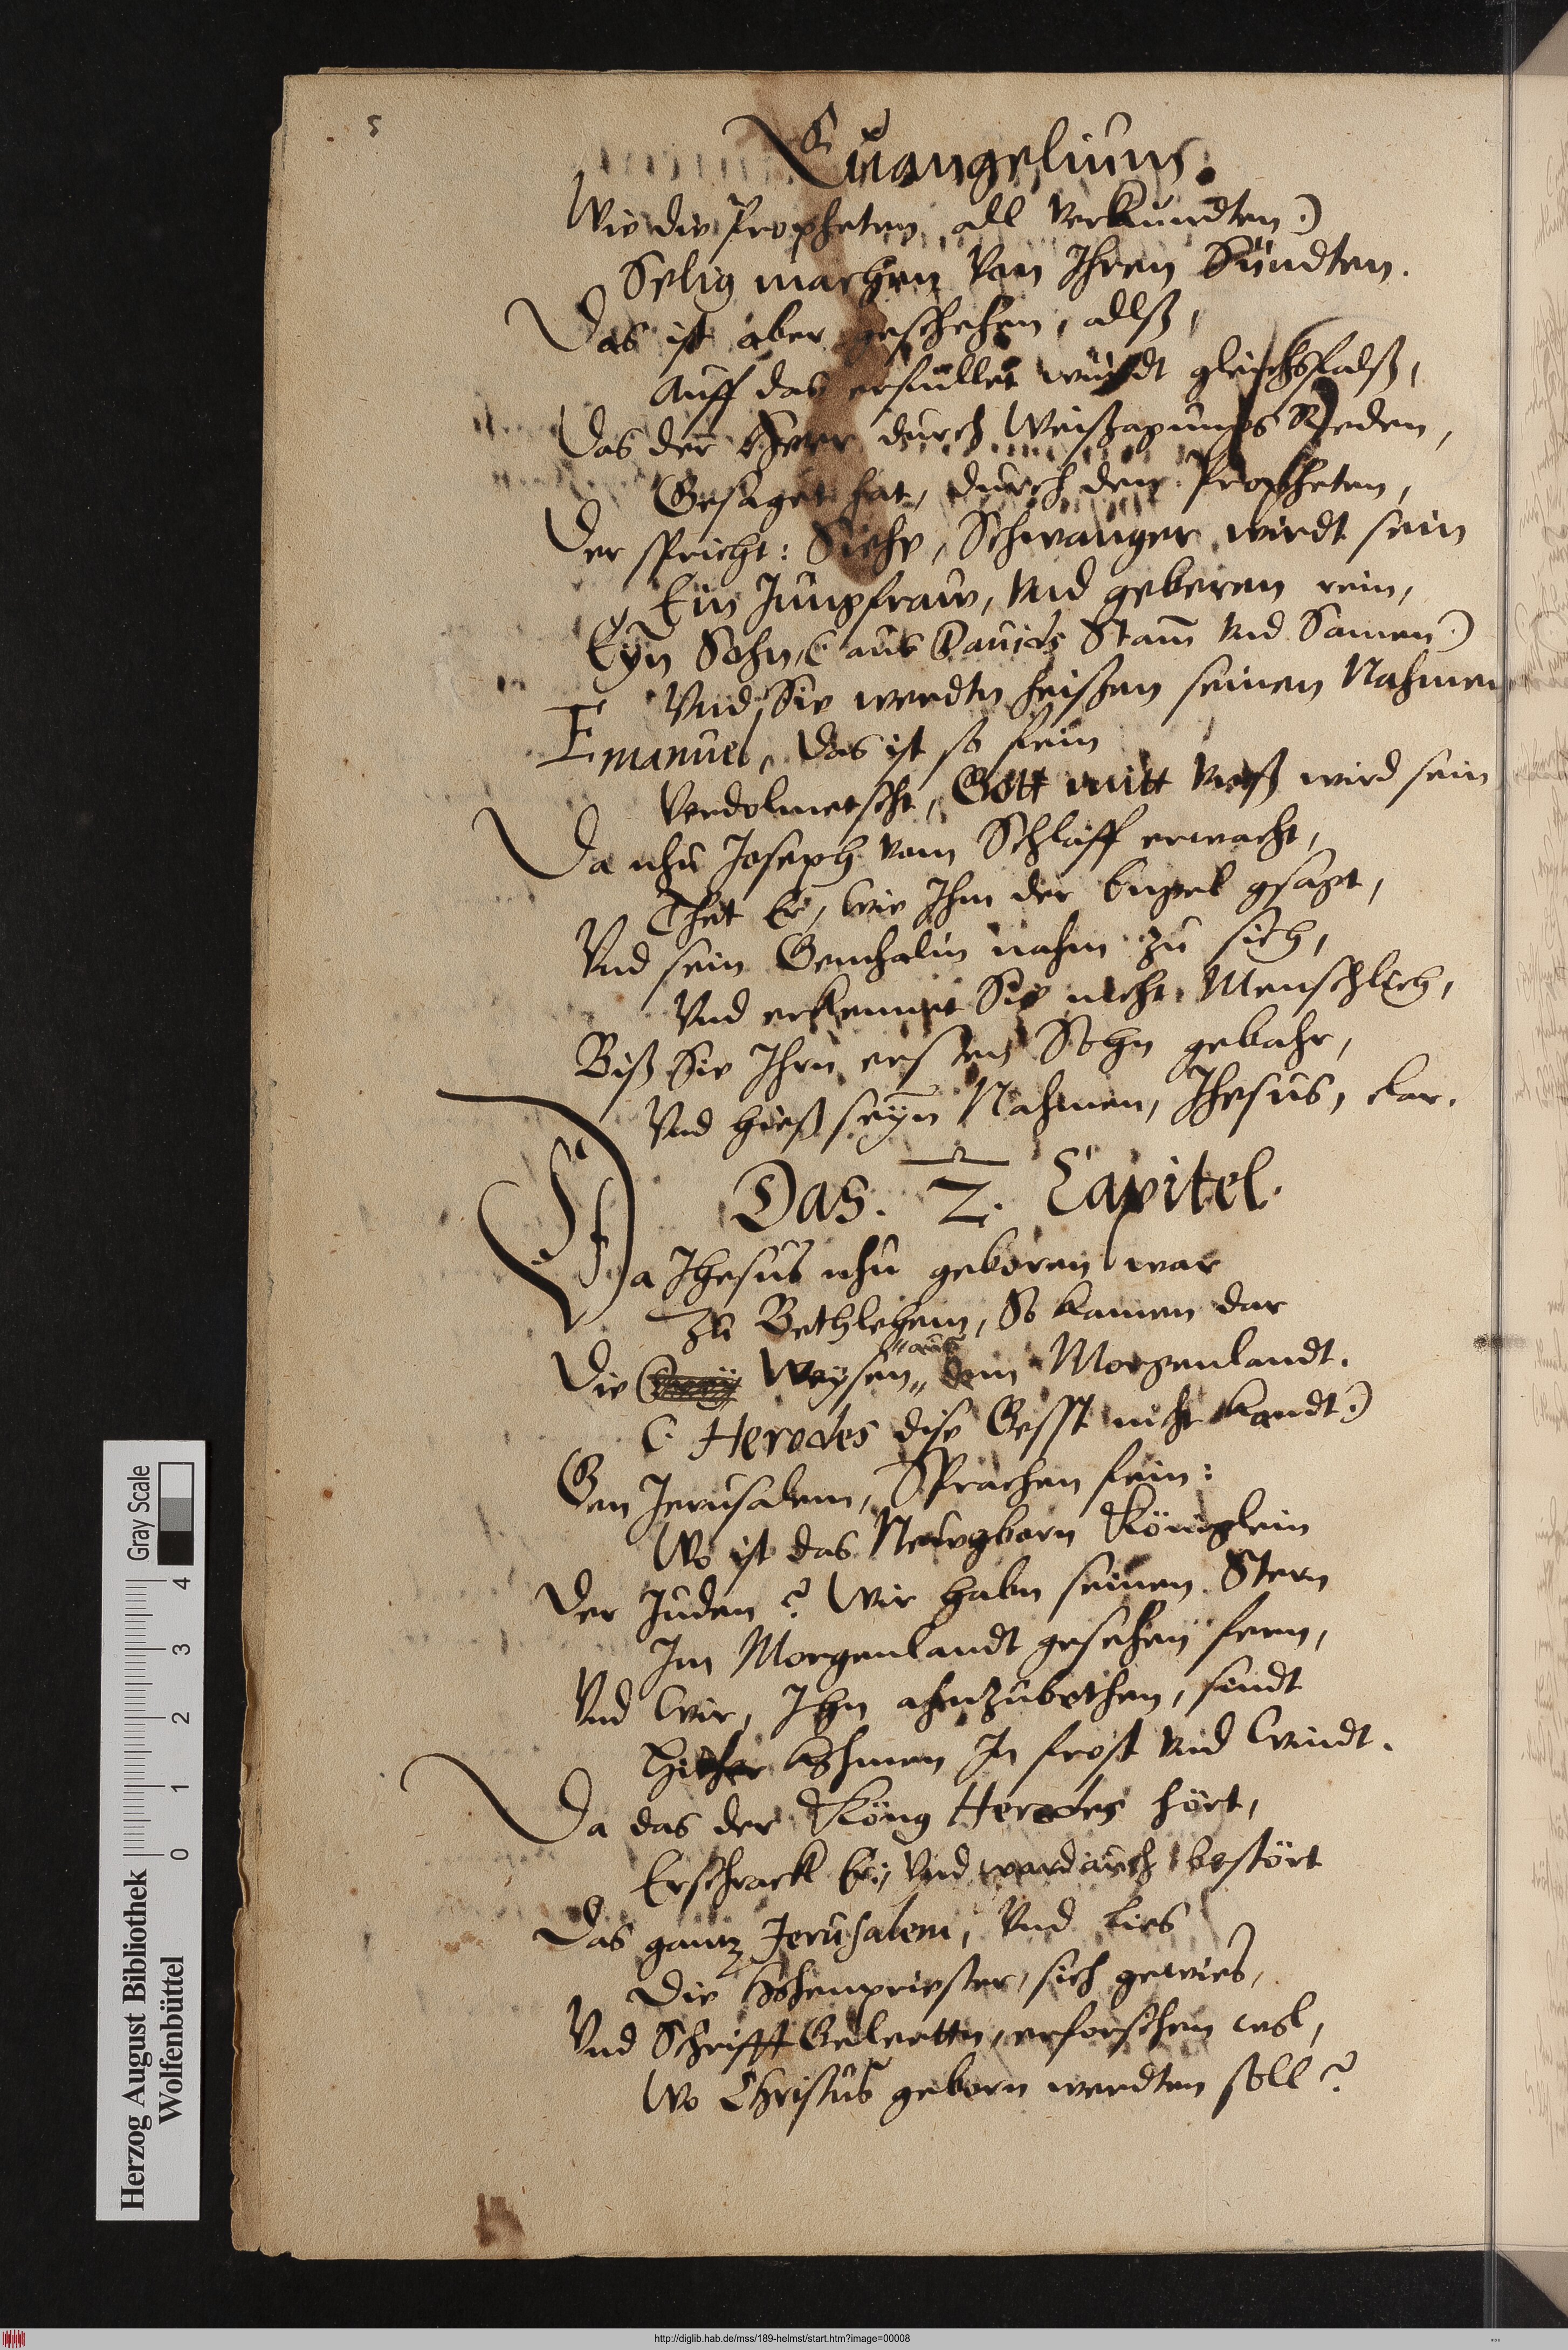 5
Euangelium.
Wie die Propheten all verkundten:)
Selig machen von Ihren Sündten.
Das ist aber geschehen, allß,
Auff das erfüllet würdt gleichsfalß,
Das der Herr durch Weißagungs Reden,
Gesaget hat, durch den Propheten,
Der spricht: Siehe, Schwanger wirdt sein
Ein Jungfraw, vnd geberen rein,
Eyn Sohn, (: aus Dauids Stam̄ vnd Samen:)
Vnd Sie werdtn heißen seinen Nahmen
Emanuel, das ist so fein
Verdolmetscht, Gott mitt vnß wird sein
Da nhu Joseph vom Schlaff erwacht,
Thet Er, wie Ihm der Engel gsagt,
Vnd sein Gemhalin nahm zu sich,
Vnd erkennet Sie nicht Menschlich,
Biß Sie Ihrn ersten Sohn gebahr,
Vnd hieß seyn Nahmen, Jhesus, klar.
Das. 2. Capitel.
Da Jhesus nhu geboren war
Zu Bethlehem, So kamen dar
Die Weysen aus dem Morgenlandt.
(: Herodes dise Gesst nicht kandt:)
Gen Jerusalem, Sprachen fein:
Wo ist das Newgborn Königlein
Der Juden? Wir habn seinen Stern
Im Morgenlandt gesehen fern,
Vnd wir, Ihn ahnzubethen, sindt
Hither kohmen In frost vnd windt.
Da das der Köng Herodes hört,
Erschrack Er, vnd ward auch bestört
Das gantz Jerusalem, Vnd lies
Die Hohenpriester, sich gewies,
Vnd Schrifft Gelertten, erforschen wol,
Wo Christus geborn werdten soll?
Herzog August Bibliothek
Wolfenbüttel
0 1 2 3 4
Gray Scale
http://diglib.hab.de/mss/189-helmst/start.htm?image=00008